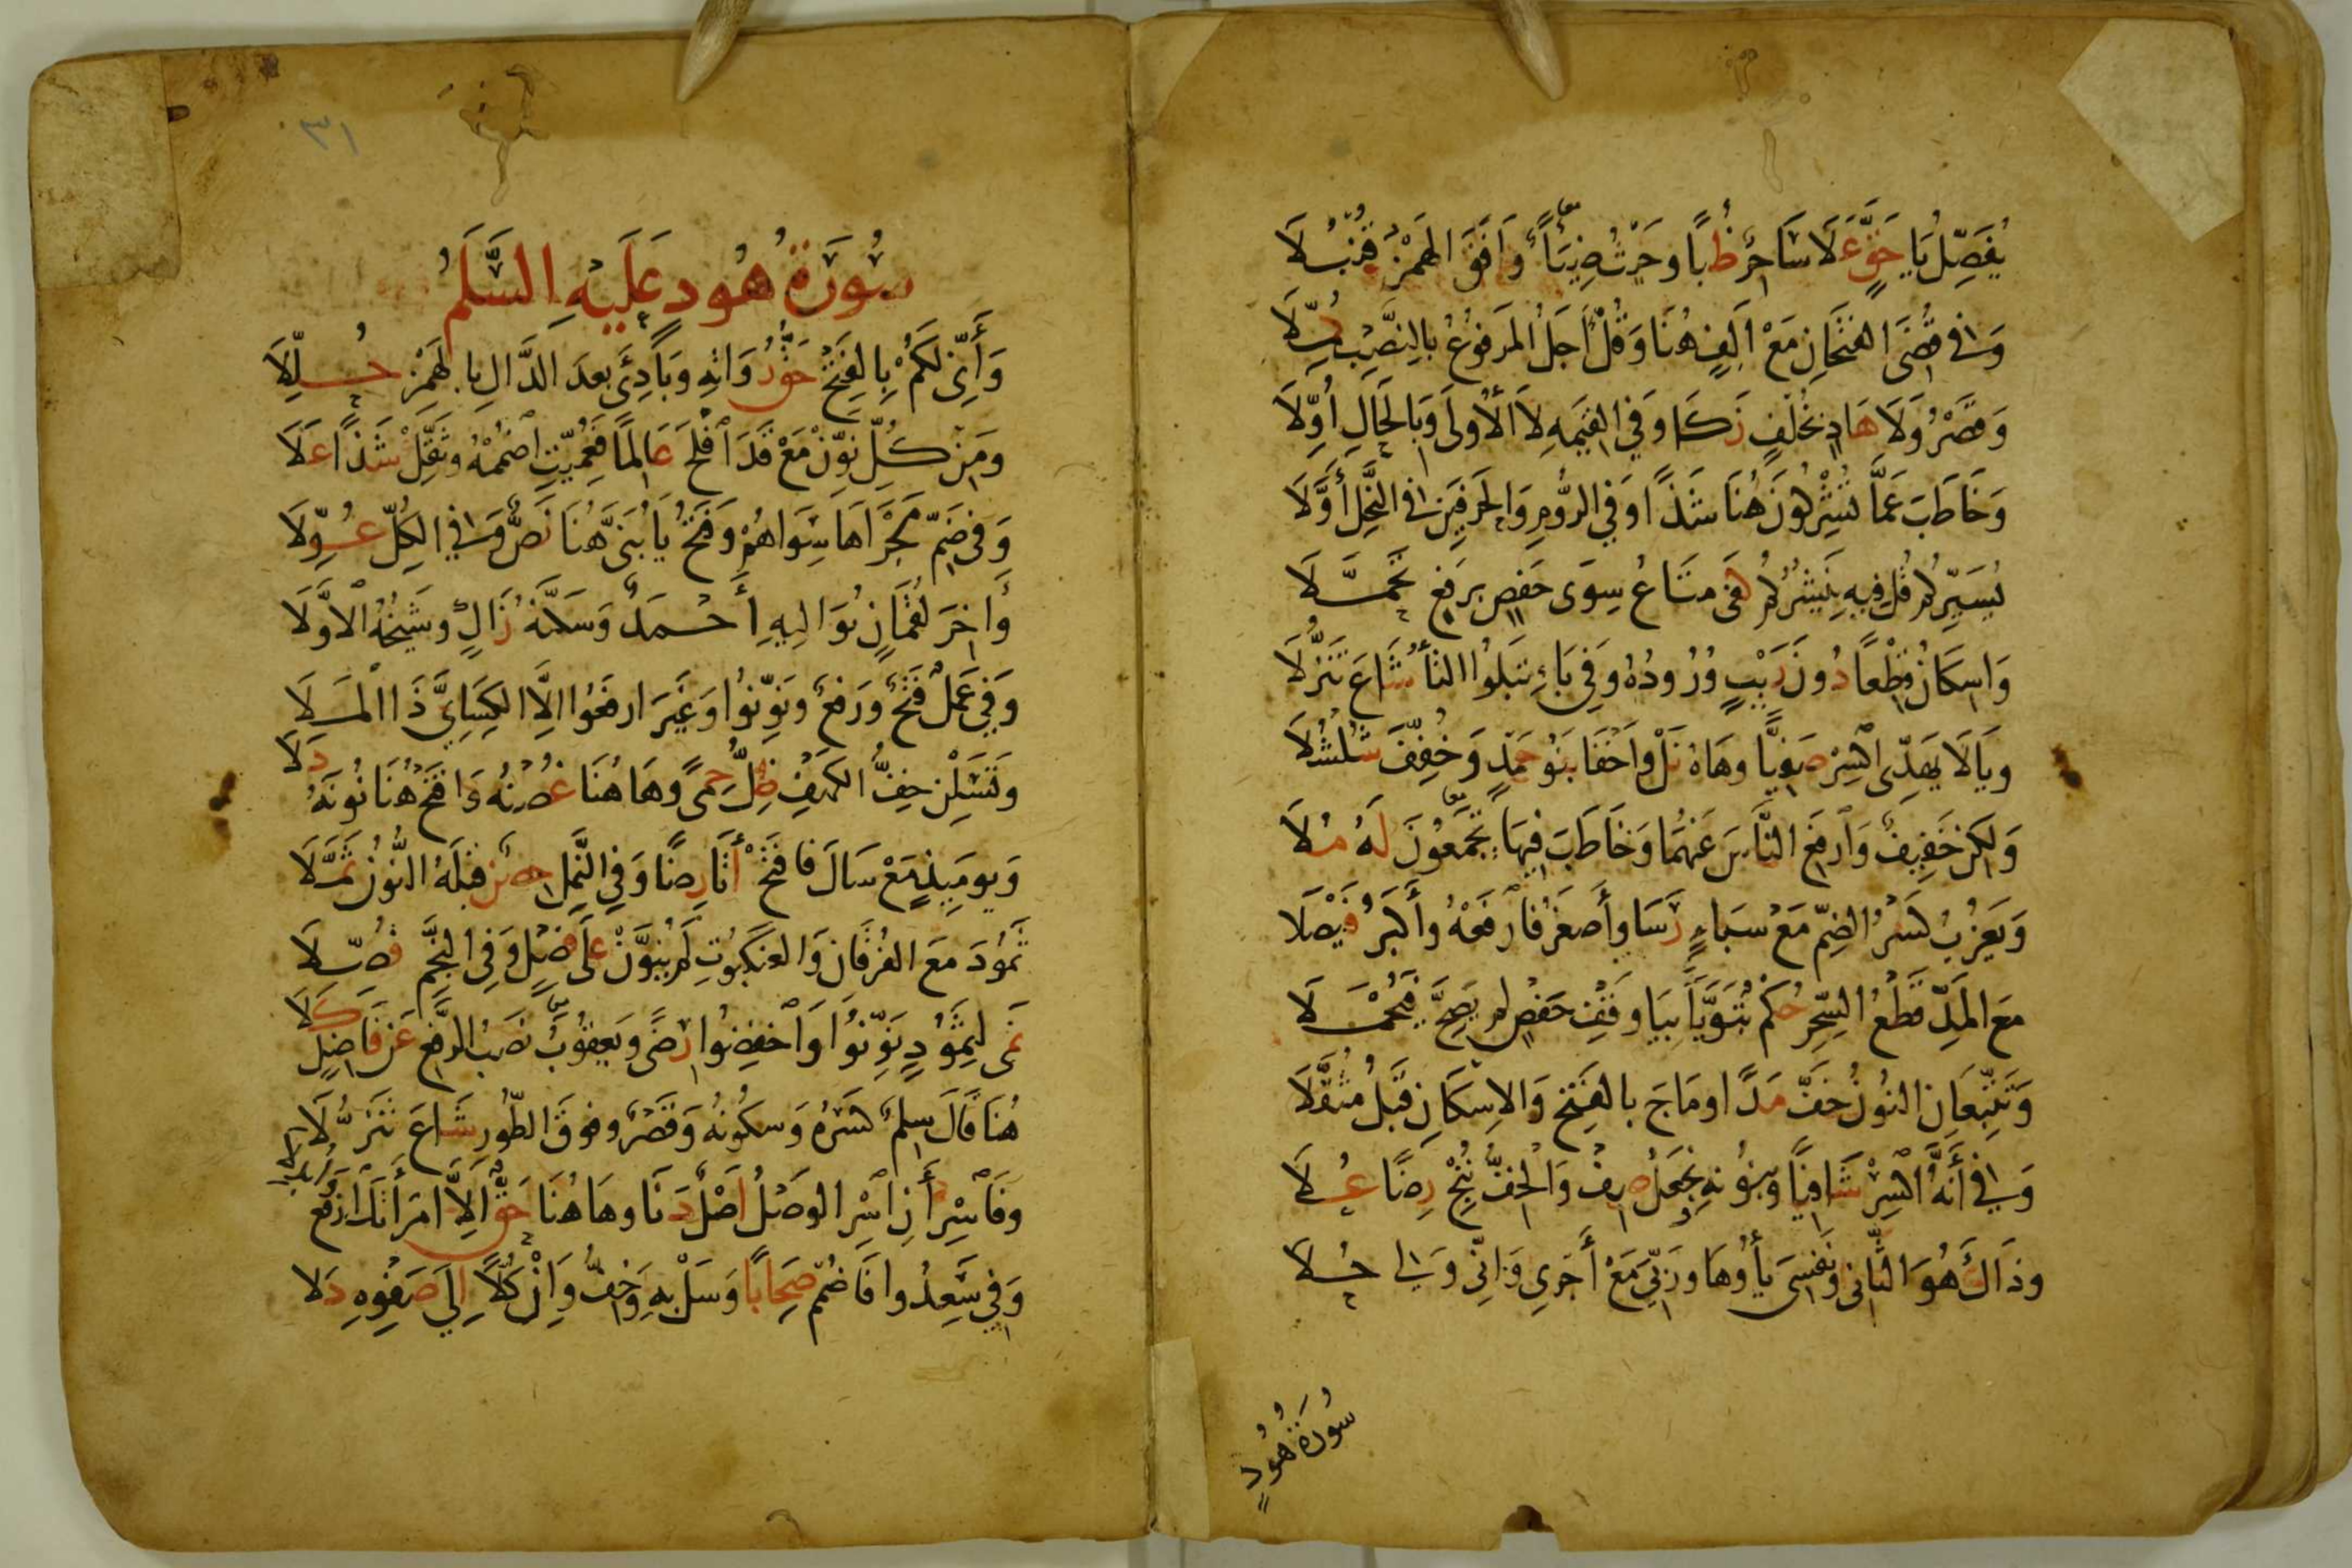 يُفَصِّلُ يَا حَقٍّ عَلَا سَاحِرٌ ظُبًا وحَيْثُ ضِيَآءً وَافَقَ الهَمْزُ قُنْبُلَا
وَفي قُضِيَ الفَتْحَانِ مَعْ اَلِفٍ هُنَا وَقُلْ أَجَلُ المَرفُوعُ بالنَّصْبِ كُمِّلَا
وَقَصْرُ وَلَا هَادٍ بخُلْفٍ زَكَا وَفي القِيٰمَهِ لَا الأُولَى وَبِالحَالِ أُوِّلَا
وَخَاطَبَ عَمَّا تُشْرِكُونَ هُنَا شَذًا وَفي الرُّومِ وَالحَرفَينِ في النَّحْلِ أَوَّلَا
يُسَيِّرُكُمْ قُلْ فِيهِ يَنْشُرُكُمْ كَفَى مَتَاعُ سِوَى حَفْصٍ بِرَفْعٍ تَحَمَّلَا
وَاسْكَانُ قِطْعًا دُونَ رَيْبٍ وُرُودُهُ وَفي بَاءِ تَبْلُوا التَّاءُ شَاعَ تَنَزُّلَا
ويَا لَا يَهَدِّي اكْسِرْ صَفِيًّا وهَاهُ نَلْ وَاَخْفَا بَنُو حَمْدٍ وَخُفِّفَ شُلْشُلَا
وَلٰكِنْ خَفِيفٌ وَارْفَعِ النَّاسَ عَنْهُمَا وَخَاطَبَ فِيهَا تَجْمَعُونَ لَهُ مُلَا
وَيَعْزُبُ كَسْرُ الضَّمِّ مَعْ سَبَاءٍ رَسَا وأَصْغَرُ فَارْفَعْهُ وأَكْبَرُ فَيْصَلَا
مَعَ المَدِّ قَطْعُ السِّحْرِ حُكْمٌ تَبَوَّيَا بِيَا وَقْفِ حَفْصٍ لَمْ يَصِحَّ فَيُحْمَلَا
وَتَتَّبِعَانِ النُونُ خَفَّ مَدًا وَمَاجَ بالفَتْحِ وَالاِسْكَانِ قَبْلُ مُثَقَّلَا
وَفي أَنَّهُ اكْسِرْ شَافِيًا وبِنُونِهِ نَجْعَلُ صِفْ وَالْخِفُّ نُنْجِ رِضًا عُلَا
وذَاكَ هُوَ الثَّانِي ونَفْسِيَ يَاؤُهَا وَرَبِّيَ مَعْ أَجْرِي وَاِنِّي وَلِي حُلَا
سُورَة هُودٍ
٣١
سُورَةُ هُود عَلَيْهِ السَّلَمُ
وَأَنِّي لَكُمْ بِالفَتْحِ حَقُّ رُوَاتِهِ وَبَادِئَ بَعدَ الدَّالِ بالهَمْزِ حُلِّلَا
وَمِنْ كُلِّ نَوِّنْ مَعْ قَدَ اَفْلَحَ عَالِمًا فَعُمِّيَتِ اضْمُمْهُ وثَقِّلْ شَذًا عَلَا
وَفي ضَمِّ مَجْرَاهَا سِوَاهُمْ وَفَتْحُ يَا بُنَيَّ هُنَا نَصٌّ وَفي الكُلِّ عُوِّلَا
وَاٰخِرَ لُقْمَانٍ يُوَالِيهِ أَحْمَدٌ وَسَكَّنَهُ زَاكٍ وشَيْخُهُ الاَوَّلَا
وَفي عَمَلٌ فَتْحٌ وَرَفْعٌ وَنَوِّنُوا وَغَيْرَ ارْفَعُوا اِلَّا الكِسَائِيَّ ذَا المَلَا
وتَسْئَلْنِ خِفُّ الكَهْفِ ظِلُّ حِمًى وَهَا هُنَا غُصْنُهُ وَافْتَحْ هُنَا نُونَهُ دَلَا
وَيَومَئِذٍ مَعْ سَالَ فَافْتَحْ أَتَى رِضًا وَفي النَّمْلِ حِصْنٌ قَبْلَهُ النُّونُ ثُمِّلَا
ثَمُودَ مَعَ الفُرْقَانِ وَالعَنْكَبُوتِ لَمْ يُنَوَّنْ عَلَى فَصْلٍ وَفي النَّجْمِ فُصِّلَا
نَمَى لِثَمُودٍ نَوِّنُوا وَاخْفِضُوا رِضًى وَيَعقُوبُ نَصْبُ الرَّفْعِ عَنْ فَاضِلٍ كَلَا
هُنَا قَالَ سِلْمٌ كَسْرُهُ وَسكُونُهُ وَقَصْرٌ وفَوقَ الطُّورِ شَاعَ تَنَزُّلَا
وفَاسْرِ أَنِ اسْرِ الوَصْلُ اَصْلٌ دَنَا وهَا هُنَا حَقٌّ اِلَّا امْرَأَتَكَ ارْفَعْ وَأَبْدِلَا
وَفي سُعِدُوا فَاضْمُمْ صِحَابًا وَسَلْ بِهِ وَخِفُّ وَإِنْ كُلًّا اِلَى صَفْوِهِ دَلَا